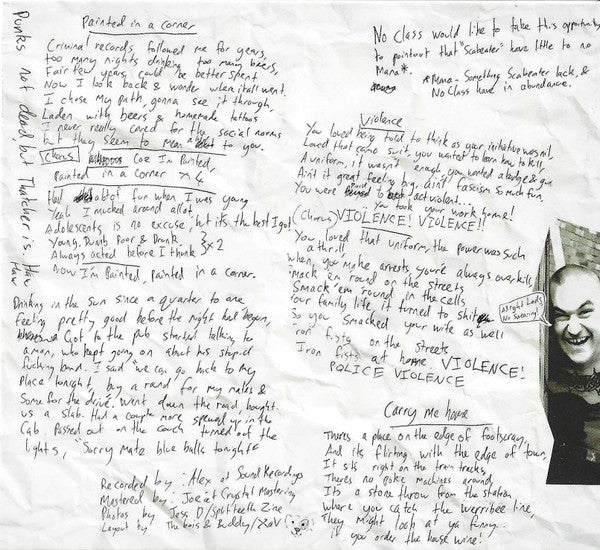 Painted in a corner
Criminal records followed me for years,
too many nights drinking too many beers,
Fair few years, could be better spent
Now I look back & wonder where it all went.
I chose my path, gonna see it through,
Laden with beers & homemade tattoos
I never really cared for the social norms
but they seem to mean alot to you.
(Chorus) Coz Im Painted,
Painted in a corner x4
Had alot of fun when I was young
Yeah I mucked around allot,
Adolescents is no excuse, but it's the best I got!
Young, Dumb Poor & Drunk
Always acted before I think } x2
Now I'm Painted, painted in a corner.
Drinking in the sun since a quarter to one
feeling pretty good before the night had begun,
Got to the pub started talking to
a man, who kept going on about his stupid
fucking band. I said "we can go back to my
Place tonight, buy a round for my mates &
Some for the drive. Went down the road bought
us a slab. Had a couple more spewed up in the
Cab. Passed out on the couch turned off the
lights, "Sorry mate blue balls tonight"
Recorded by: Alex at Sound Recordings
Mastered by: Joe at Crystal Mastering
Photos by Jess D/Splitteeth Zine
Layout by The bois & Buddy/XoV
Punks not dead, but Thatcher is Haw Haw
No Class would like to take this opportunity
to point out that "Scabeater" have little to no
Mana*.
*Mana - Something Scabeater lack, &
No Class have in abundance.
Violence
You loved being told to think as your initiative was nil,
Loved that camo suit, you wanted to learn how to kill
A uniform, it wasn't enough, you wanted a badge & gun
Ain't it great feeling big, ain't fascism so much fun,
You were Paid to act violent...
You took your work home!
(Chorus) VIOLENCE! VIOLENCE!!
You loved that uniform, the power was such
a thrill
when you make arrests you're always overkill,
Smack em round on the streets
Smack 'em round in the cells
Your family life it turned to shit
So you smacked your wife as well
Iron fists on the streets
Iron fists at home VIOLENCE!
POLICE VIOLENCE
Alright Lads
No Swearing!
Carry me home
Theres a place on the edge of footscray,
And its flirting with the edge of town,
It sits right on the train tracks,
Theres no pokie machines around
Its a stone throw from the station
where you catch the werribee line,
They might look at ya funny...
if you order the house wine!